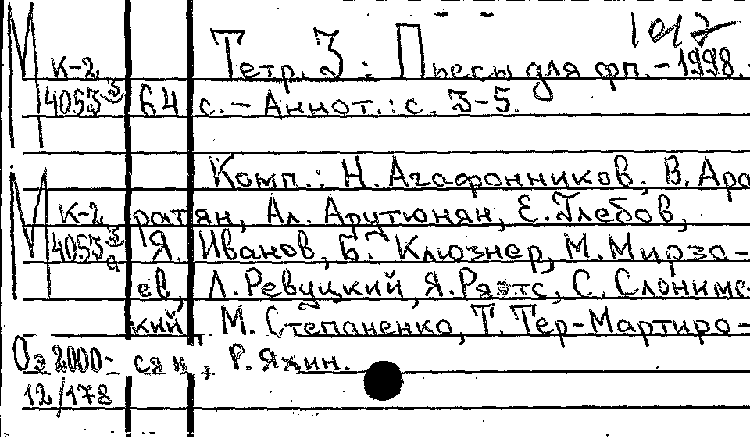 Тетр. 3: Пьесы для фп. - 1998. -
М К-2
4055 3
64 с. - Аннот.: с. 3-5.
Комп.: Н. Агафонников, В. Ара
М К-2
ратян, Ал. Арутюнян, Е. Глебов,
4055 3
Я. Иванов, Б. Клюзнер, М. Мирзо-
ев, Л. Ревуцкий, Я. Ряэтс, С. Слонимс-
кий, М. Степаненко, Т. Тер-Мартиро-
Оз 2000- сян, Р. Яхин.
12/178